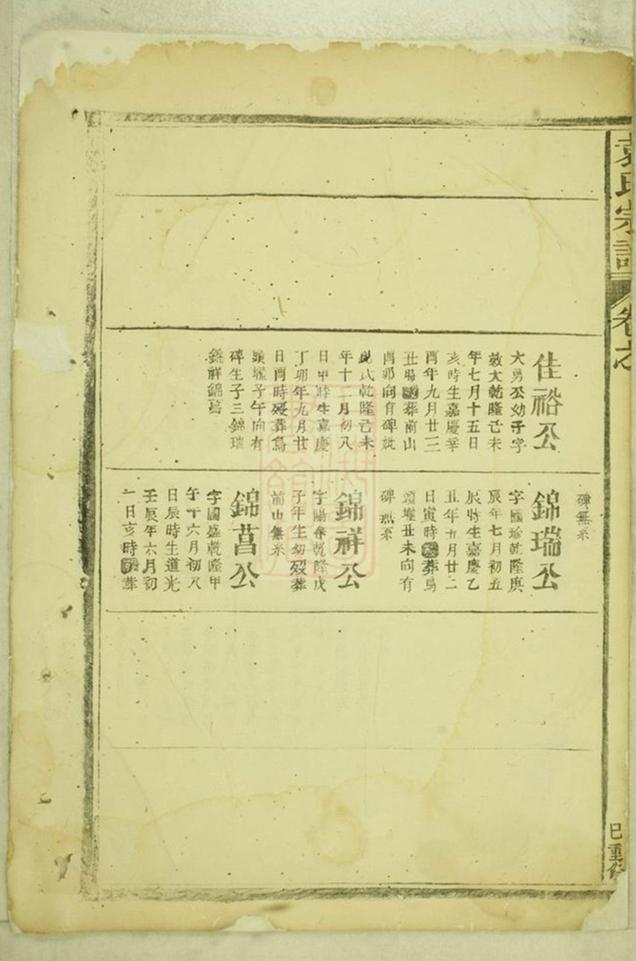 袁氏宗譜
卷之
佳裕公
大勇公幼子字
敦大乾隆己未
年七月十五日
亥時生嘉慶辛
酉年九月廿三
丑時歿葬前山
酉卯向有碑妣
氏乾隆己未
年十二月初八
日申時生嘉慶
丁卯年九月廿
日酉時歿葬烏
頭壠子午向有
碑生子三錦瑞
錦祥錦菖
碑無系
錦瑞公
字國珍乾隆庚
辰年七月初五
辰時生嘉慶乙
丑年五月廿二
日寅時歿葬烏
頭壠丑未向有
碑無系
錦祥公
字陽春乾隆戊
子年生幼歿葬
前山無系
錦菖公
字國盛乾隆甲
午年六月初八
日辰時生道光
壬辰年六月初
一日亥時歿葬
巳重修